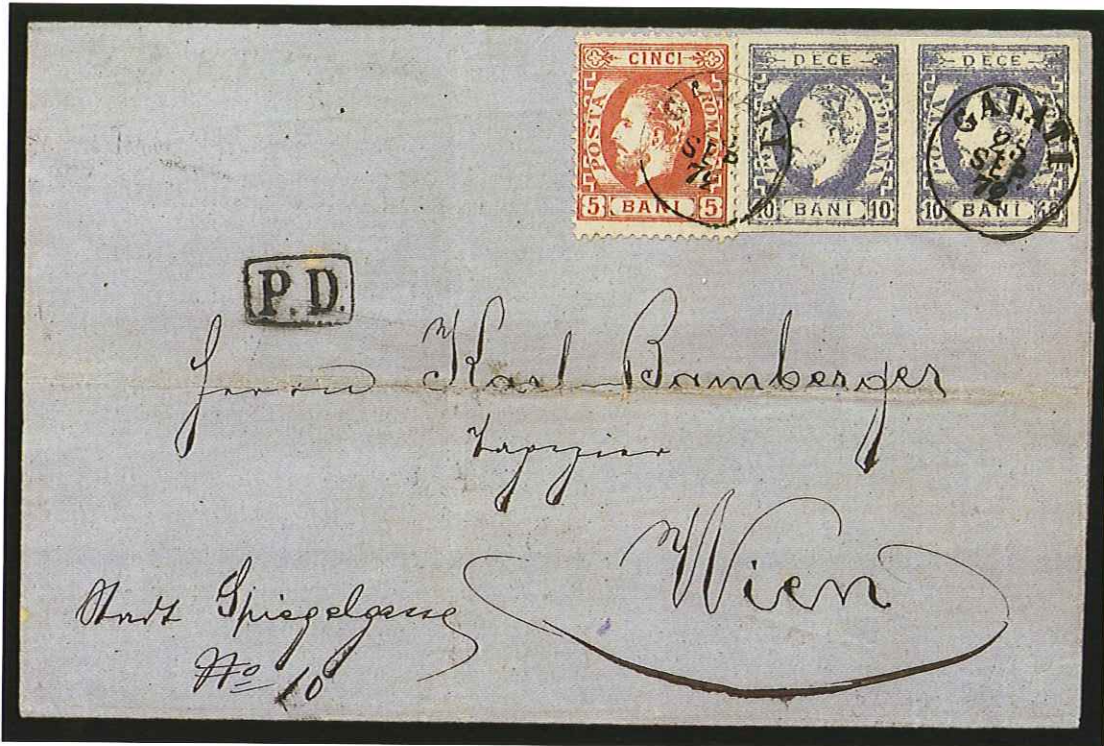 CINCI
POSTA
ROMANA
5 BANI 5
DECE
POSTA
ROMANA
10 BANI 10
DECE
POSTA
10 BANI 10
GALATI
SEP
72
GALATI
SEP.
72
P.D.
Herrn Karl Bamberger
Tapezier
Wien
Stadt Spiegelgasse
No 10